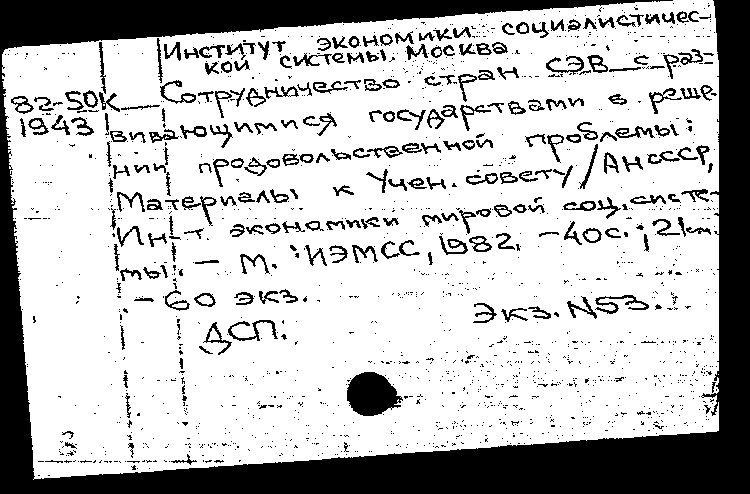 Институт экономики социалистичес-
кой системы. Москва.
82-50К Сотрудничество стран СЭВ с раз-
1943 вивающимися государствами в реше
нии продовольственной проблемы:
Материалы к Учен. совету / АН СССР,
Ин-т. экономики мировой соц. систе-
мы. - М. : ИЭМСС, 1982. - 40с. ; 21см.
- 60 экз.
ДСП. Экз. N53.
З